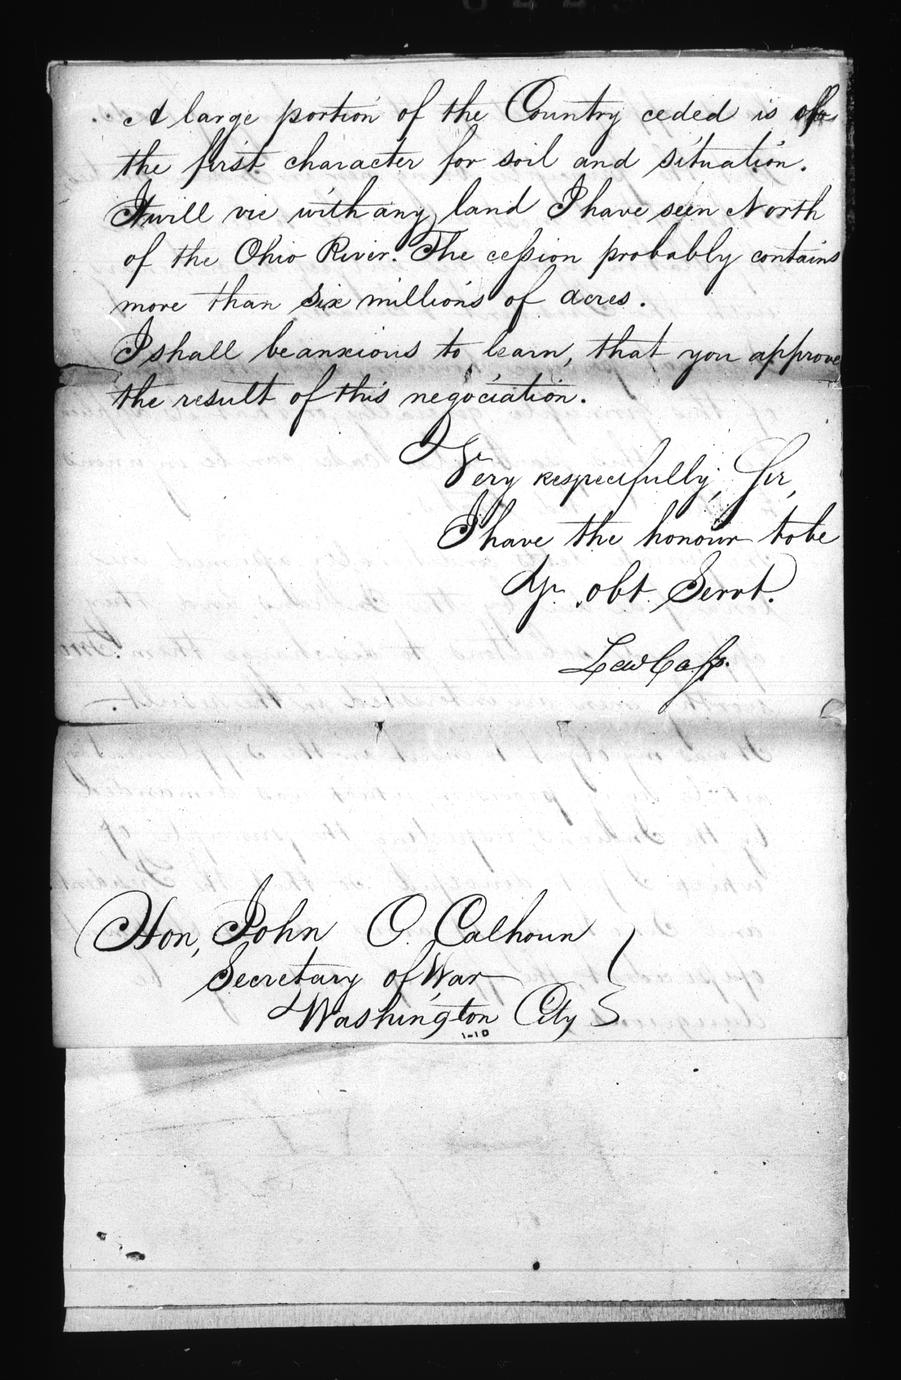 A large portion of the Country ceded is of
the first character for soil and situation.
It will vie with any land I have seen North
of the Ohio River. The cession probably contains
more than six millions of acres.
I shall be anxious to learn, that you approve
the result of this negociation.
Very respectfully, Sir,
I have the honour to be
Yr. obt. Servt.
Lew Cass.
Hon, John C. Calhoun
Secretary of War
Washington City
1-10